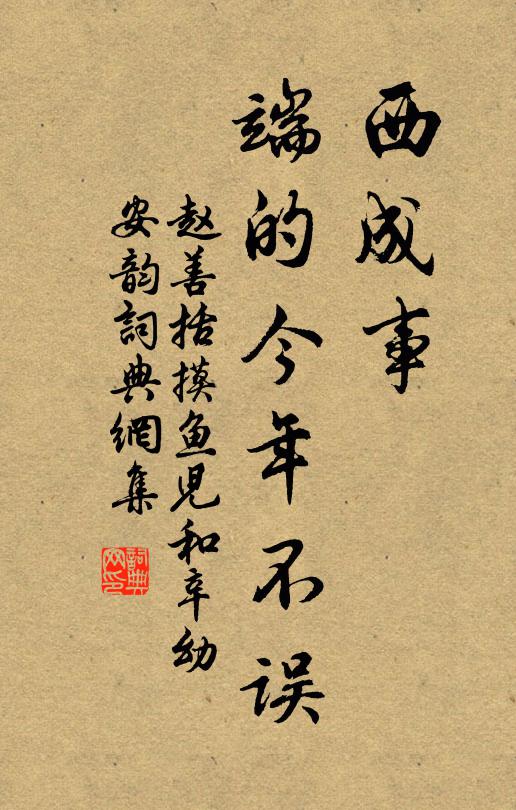 西成事
端的今年不误
赵善括摸鱼儿和辛幼
安韵詞典網集
詞典
网印